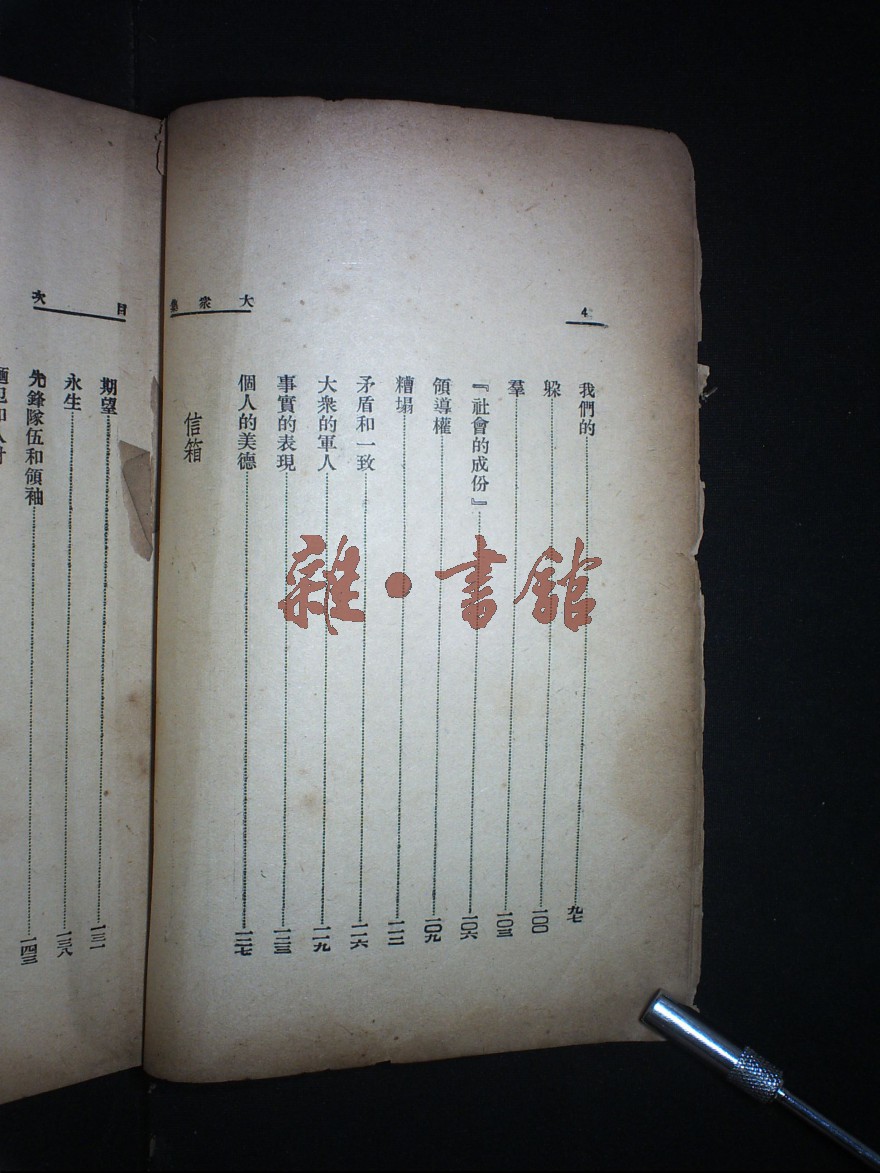 4
大衆集
我們的 九七
躲 一〇〇
羣 一〇三
『社會的成份』 一〇六
領導權 一〇九
糟塌 一一二
矛盾和一致 一一六
大衆的軍人 一一九
事實的表現 一二三
個人的美德 一二七
信箱
目次
期望 一三一
永生 一三八
先鋒隊伍和領袖 一四三
雜·書館